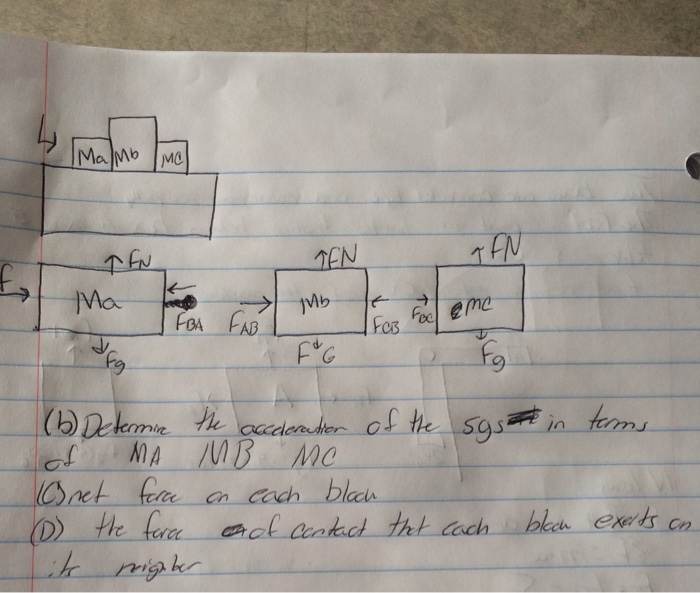 Ma Mb MC
↑ FN ↑FN ↑ FN
F → Ma ← FBA FAB → Mb ← FCB → FBC mc
↓ Fg F↓G ↓ Fg
(b) Determine the acceleration of the sys in terms
of MA MB MC
(C) net force on each block
(D) the force of contact tht each block exerts on
its neighber